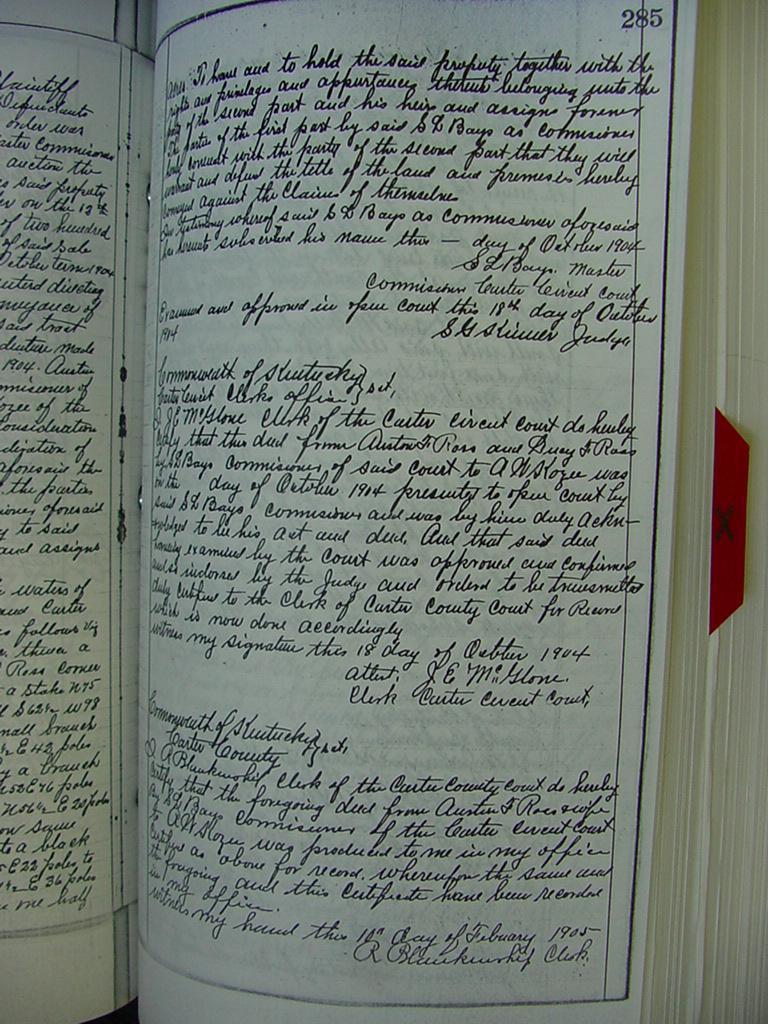 Plaintiff
Defendants
order was
aster Commissioner
auction the
s said property
er on the 12th
of two hundred
of said Sale
October term 1904
entered directing
conveyance of
said tract
denture made
1904. Austin
mmissioner of
Kozee of the
consideration
aforesaid the
the parties
ioner aforesaid
y to said
and assigns
waters of
and Carter
s follows viz
thence a
Ross corner
a Stake N75
S 62½ W98
mall branch
½ E 42 poles
y a branch
N52E76 poles
N56½ E 20 poles
ow Square
to a black
E22 poles to
½ E 36 poles
one half
285
acres. To have and to hold the said property together with the
rights and privelages and appurtances thereunto belonging unto the
party of the second part and his heirs and assigns forever
The parties of the first part by said S L Bays as commisioner
hereby covenant with the party of the second part that they will
warrant and defend the tittle of the land and premises hereby
conveyed against the Claims of themselves
In testimony whereof said S L Bays as commisioner aforesaid
has hereunto subscribed his name this — day of October 1904
S L Bays. Master
Commisioner Carter Circuit Court
Examined and approved in open court this 18th day of October
1904
S G Kinner Judge
Commonwealth of Kentucky } Sct,
Carter Circuit Clerks office }
I J. E McGlone Clerk of the Carter Circuit court do hereby
certify that this deed from Auston F Ross and Lucy F Ross
by S L Bays Commisioner of said court to A W Kozee was
on the day of October 1904 presented to open court by
said S L Bays Commisioner and was by him duly ackn-
owledged to be his act and deed. And that said deed
having examined by the court was approved and confirmed
and so indorsed by the Judge and orderd to be transmitted
duly certified to the Clerk of Carter County Court for Record
which is now done accordingly
witness my signature this 18 day of Octber 1904
attest, J. E McGlone.
Clerk Carter Circuit Court,
Commonwealth of Kentucky }
Carter County } Sct,
I R Blankenship Clerk of the Carter County court do hereby
Certify that the foregoing deed from Austin F Ross & wife
By S L Bays Commisioner of the Carter circuit court
to A W Kozee was produced to me in my office
certified as above for record. whereupon the same and
the foregoing and this certificate have been recorded
in my office.
witness my hand this 10th day of Febuary 1905
R Blankenship Clerk.
X